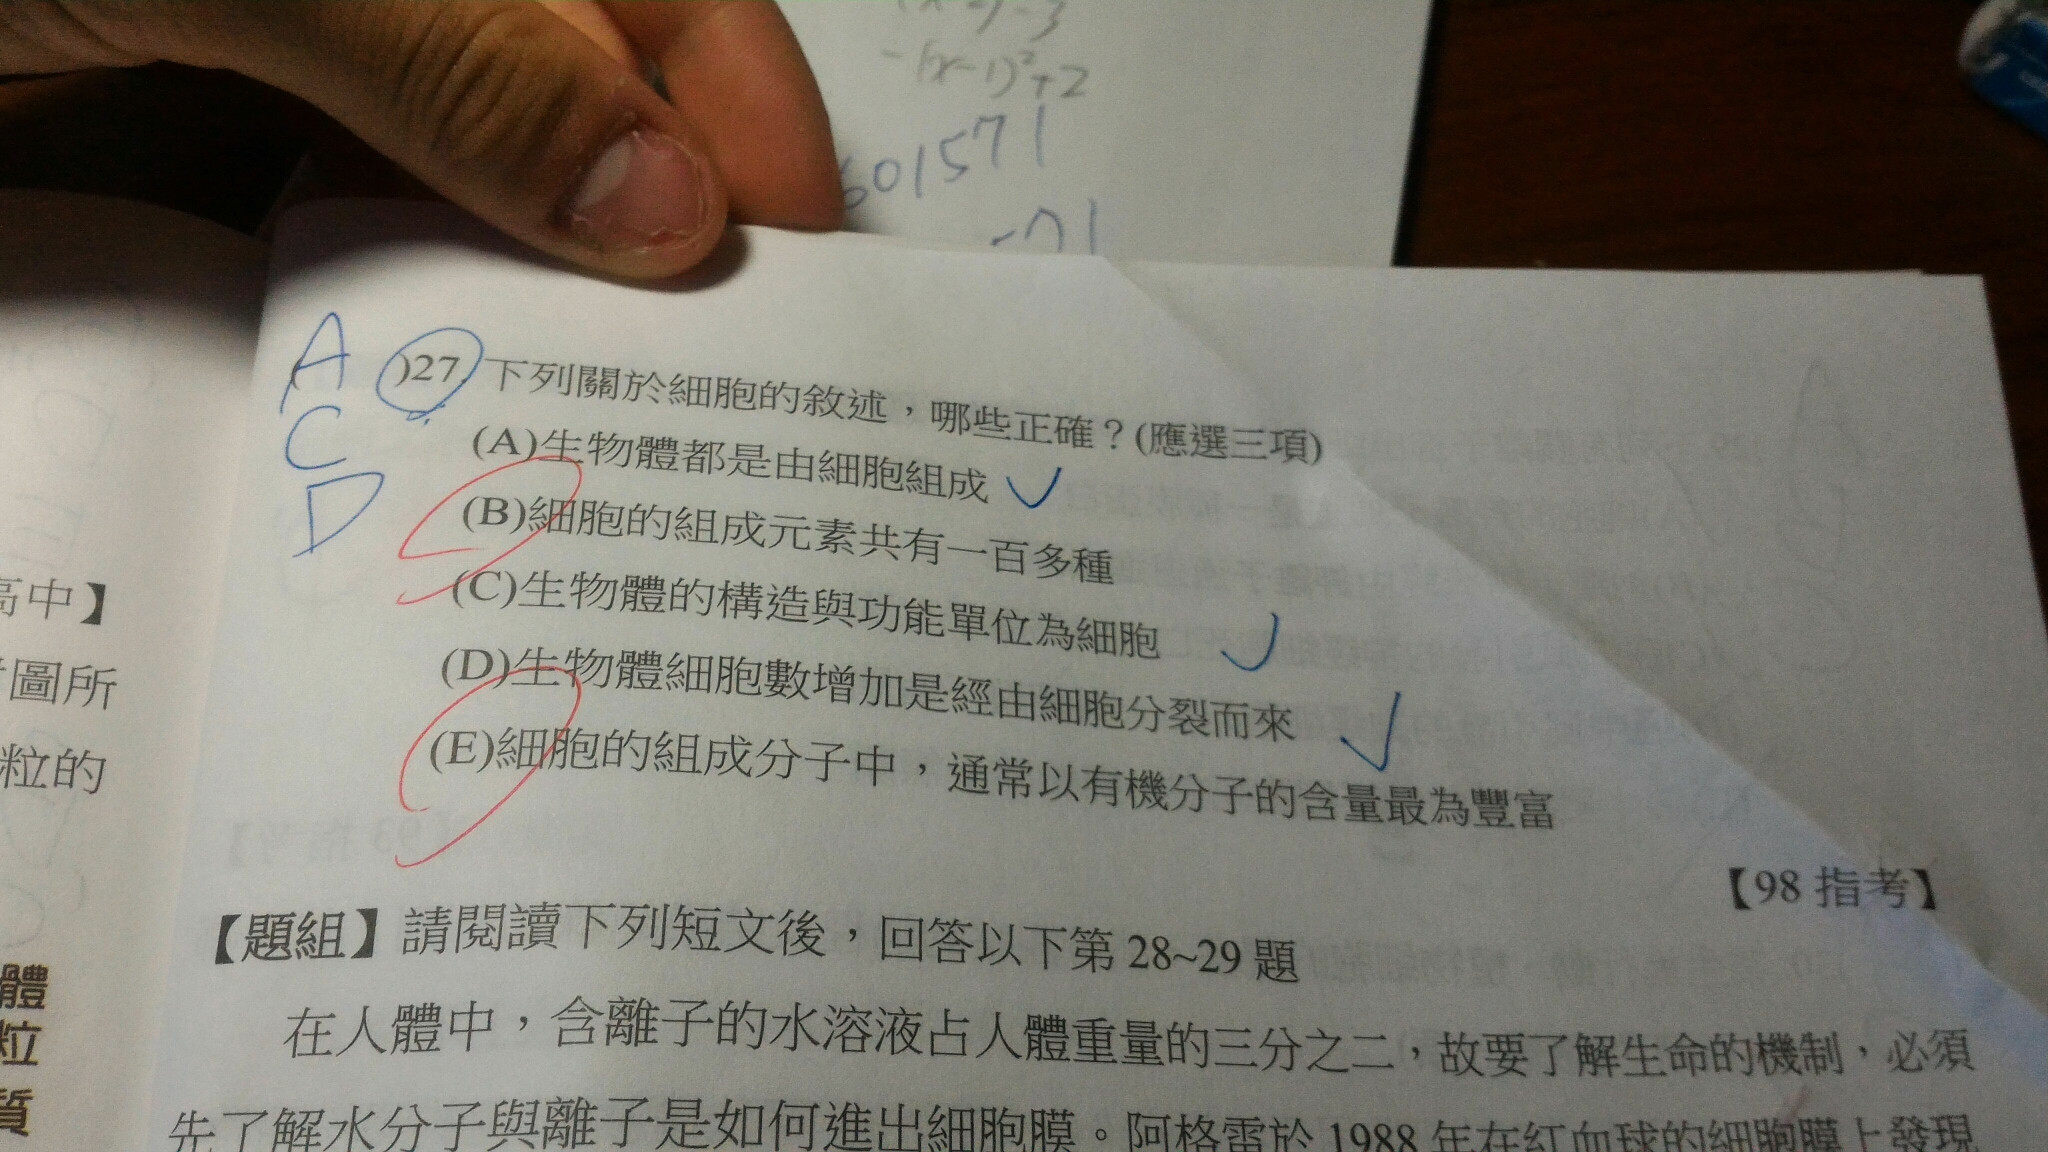 -(x-1)²+2
601571
71
A
C
D
)27. 下列關於細胞的敘述，哪些正確？(應選三項)
(A)生物體都是由細胞組成
(B)細胞的組成元素共有一百多種
(C)生物體的構造與功能單位為細胞
(D)生物體細胞數增加是經由細胞分裂而來
(E)細胞的組成分子中，通常以有機分子的含量最為豐富
【98 指考】
【題組】請閱讀下列短文後，回答以下第 28~29 題
在人體中，含離子的水溶液占人體重量的三分之二，故要了解生命的機制，必須
先了解水分子與離子是如何進出細胞膜。阿格雷於 1988 年在紅血球的細胞膜上發現
高中】
圖所
粒的
體
粒
質